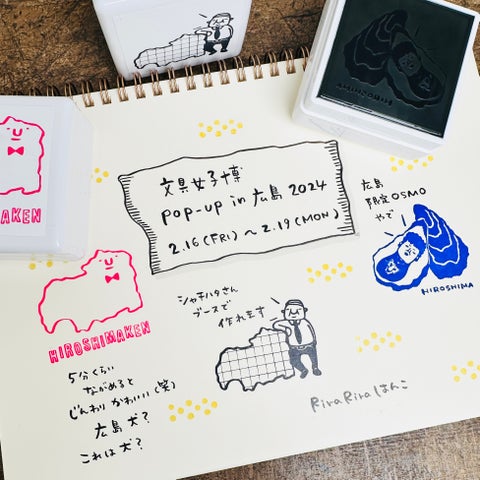 文具女子博
POP-UP in 広島 2024
2.16(FRI)～2.19(MON)
広島
限定OSMO
やで
HIROSHIMA
シャチハタさん
ブースで
作れます
HIROSHIMAKEN
5分くらい
ながめると
じんわりかわいい(笑)
広島犬?
これは犬?
RiraRiraはんこ
MAKEN
HIROSHIMA